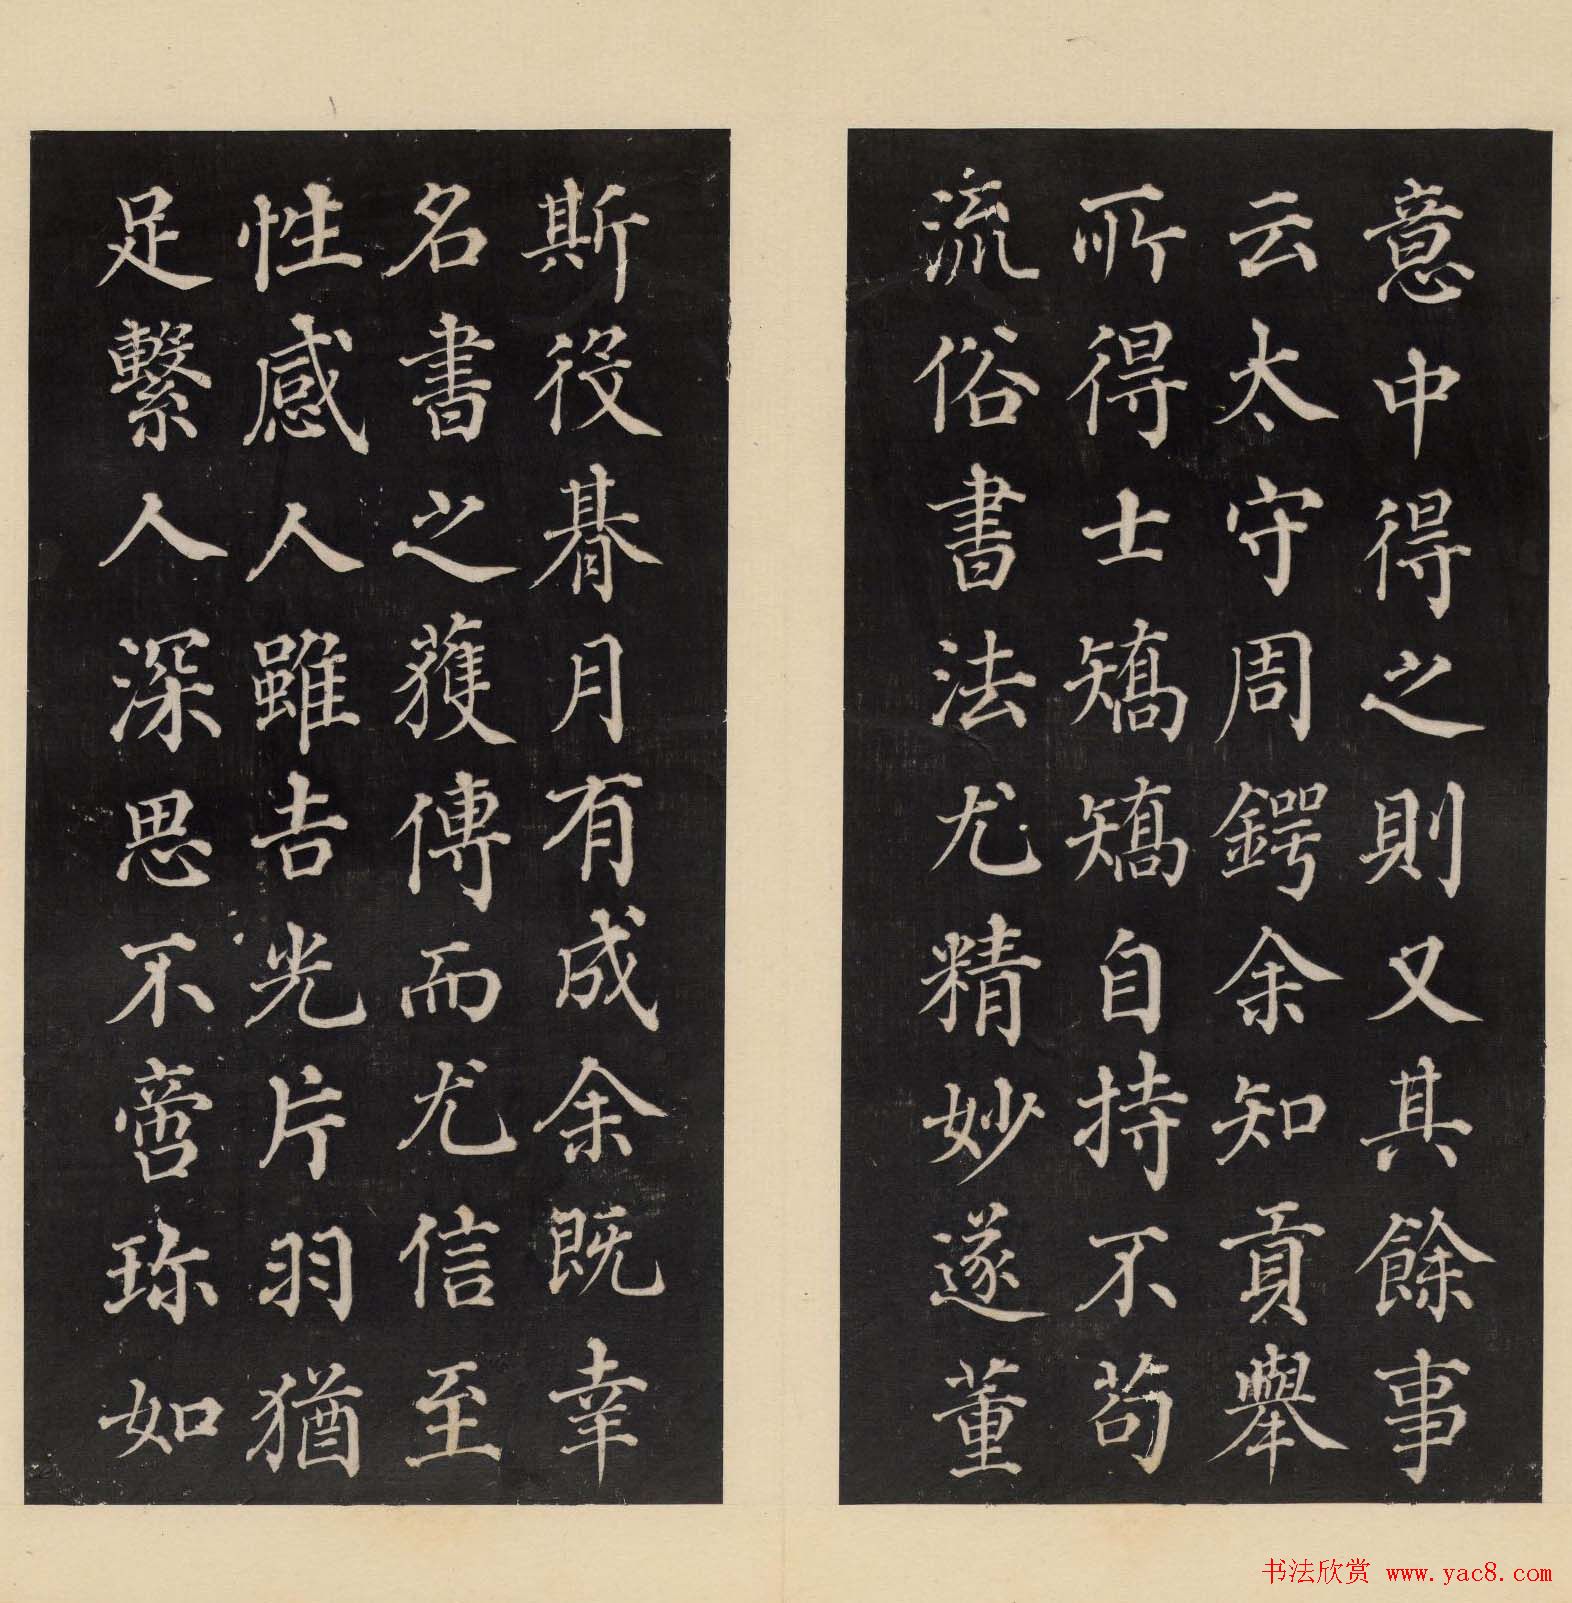 意中得之則又其餘事
云太守周鍔余知貢舉
所得士矯矯自持不苟
流俗書法尤精妙遂董
斯役朞月有成余既幸
名書之獲傳而尤信至
性感人雖吉光片羽猶
足繫人深思不啻珎如
书法欣赏 www.yac8.com